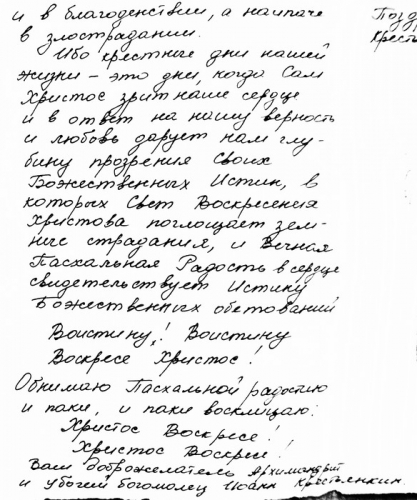 и в благоденствии, а наипаче
в злострадании.
Ибо крестные дни нашей
жизни – это дни, когда Сам
Христос зрит наше сердце
и в ответ на нашу верность
и любовь дарует нам глу-
бину прозрения Своих
Божественных Истин, в
которых Свет Воскресения
Христова поглощает зем-
ные страдания, и Вечная
Пасхальная Радость в сердце
свидетельствует Истину
Божественных обетований
Воистину! Воистину
Воскресе Христос!
Обнимаю Пасхальной радостию
и паки, и паки восклицаю:
Христос Воскресе!
Христос Воскресе!
Ваш доброжелатель Архимандрит
и убогий богомолец Иоанн Крестьянкин.